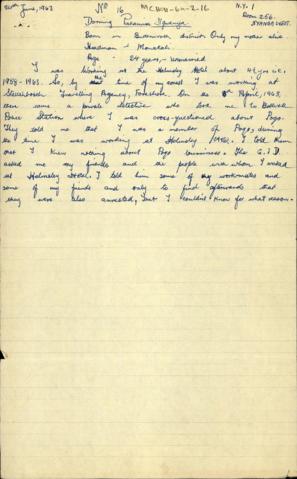 20th June, 1963 No 16 MCH18-60-2-16 N.Y. 1
Box 256.
Born in district. Only my mother alive
Headman -
Age - 24 years, - unmarried
I was working at the Hotel about
1958 - 1963. So, by the time of my arrest I was working at
Travelling Agency, On 8th April, 1963,
came some a private detective who took me to Bellville
Police Station where I was cross-questioned about Poqo.
They told me that I was a member of Poqo, during
the time I was working at Hotel. I told them
that I knew nothing about Poqo business. The C.I.D
asked me my friends and the people with whom I worked
at Hotel. I told him some of my workmates and
some of my friends and only to find afterwards that
they were also arrested, but I couldn't know for what reason.